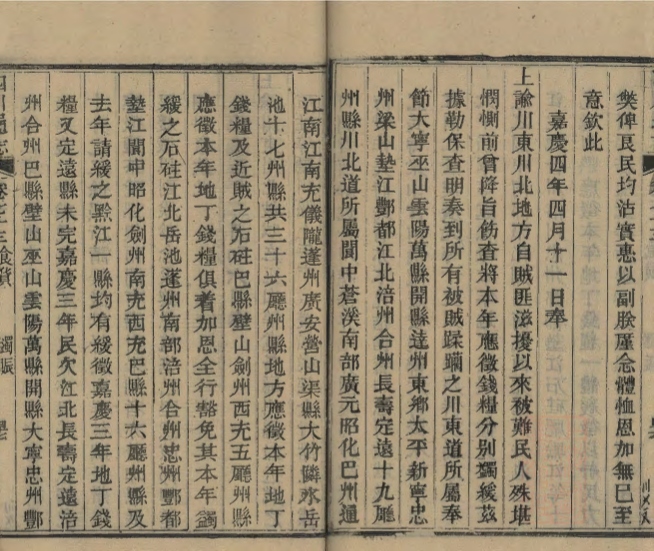 獘俾良民均沾實惠以副朕廑念體恤恩加無已至
意欽此
嘉慶四年四月十一日奉
上諭川東川北地方自賊匪滋擾以來被難民人殊堪
憫惻前曾降旨飭查將本年應徵錢糧分别蠲緩茲
據勒保查明奏到所有被賊蹂躪之川東道所屬奉
節大寧巫山雲陽萬縣開縣達州東鄉太平新寧忠
州梁山墊江酆都江北涪州合州長壽定遠十九廳
州縣川北道所屬閬中蒼溪南部廣元昭化巴州通
江南江南充儀隴蓬州廣安營山渠縣大竹隣水岳
池十七州縣共三十六廳州縣地方應徵本年地丁
錢糧及近賊之石砫巴縣璧山劍州西充五廳州縣
應徵本年地丁錢糧俱着加恩全行豁免其本年蠲
緩之石砫江北岳池蓬州南部涪州合州忠州酆都
墊江閬中昭化劍州南充西充巴縣十六廳州縣及
去年請緩之黔江一縣均有緩徵嘉慶三年地丁錢
糧又定遠縣未完嘉慶三年民欠江北長壽定遠涪
州合州巴縣璧山巫山雲陽萬縣開縣大寧忠州酆
四川通志
卷之
食貨
蠲賑